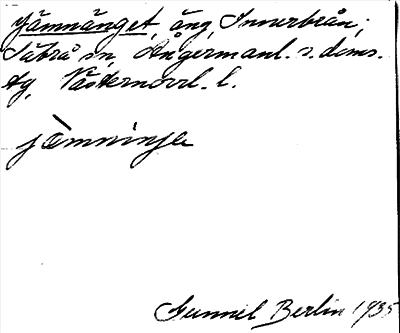 Jämnänget, äng, Innerbeån;
Säbrå sn, Ångermanl. s. doms.
tg, Västernorrl. l.
jàmninja
Gunnel Berlin 1935